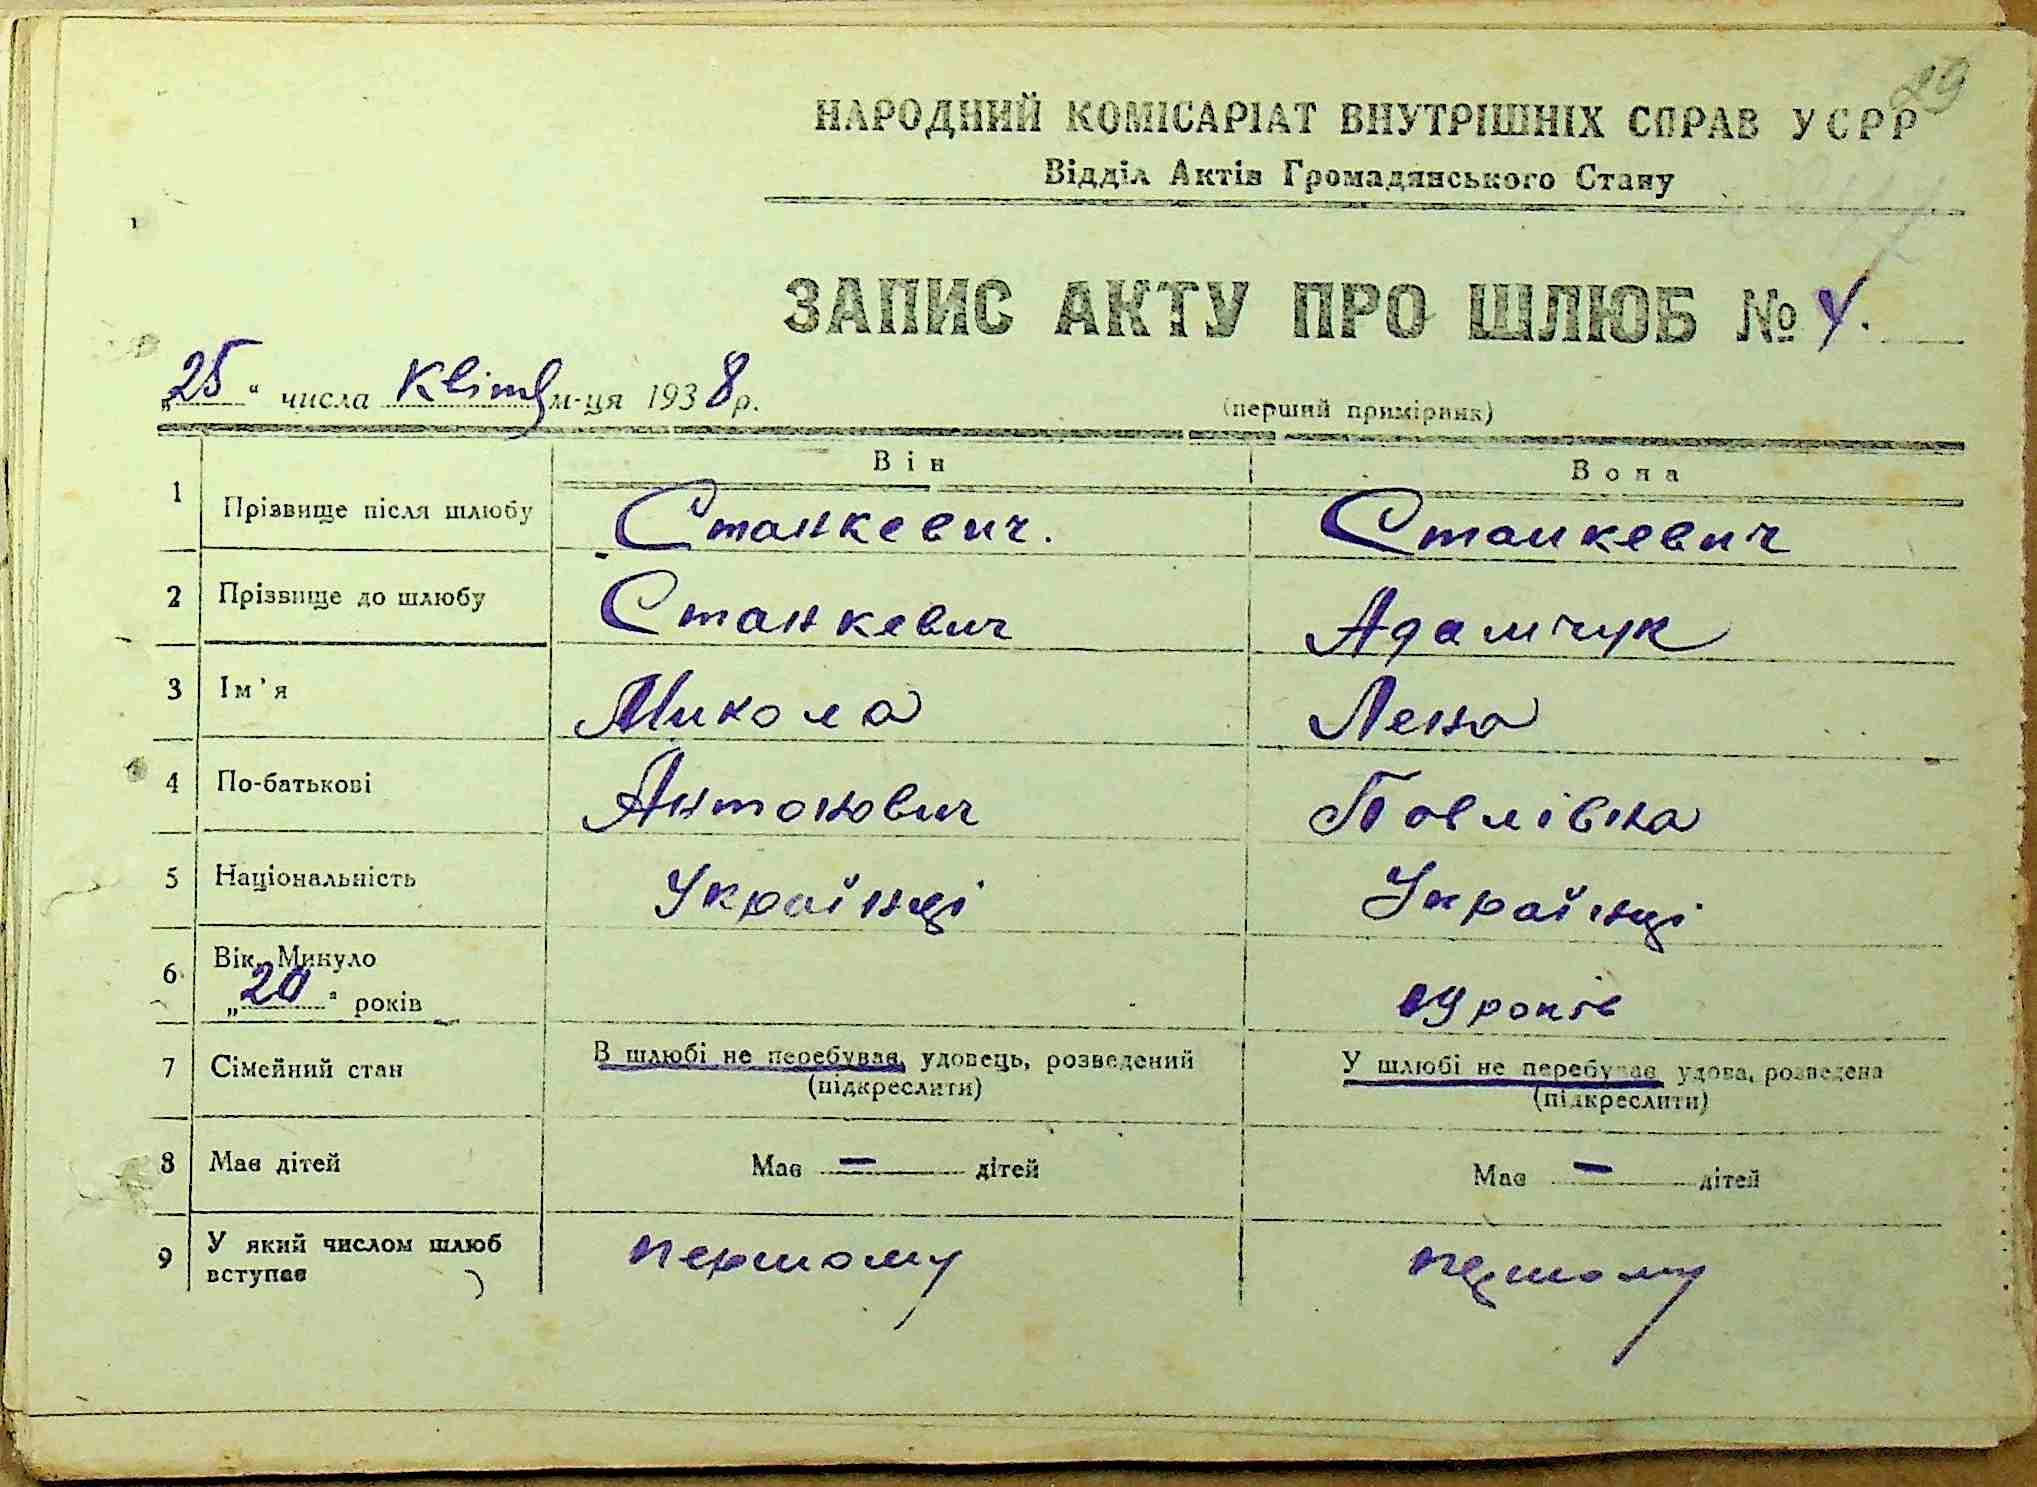 29
НАРОДНИЙ КОМІСАРІАТ ВНУТРІШНІХ СПРАВ УСРР
Відділ Актів Громадянського Стану
ЗАПИС АКТУ ПРО ШЛЮБ № 4.
„25“ числа Квітня м-ця 1938 р.
(перший примірник)
Він Вона
1 Прізвище після шлюбу Станкевич. Станкевич
2 Прізвище до шлюбу Станкевич Адамчук
3 Ім'я Микола Лена
4 По-батькові Антонович Павлівна
5 Національність Українці Українці
6 Вік. Минуло
„20“ років 19 років
7 Сімейний стан В шлюбі не перебував, удовець, розведений У шлюбі не перебував удова, розведена
(підкреслити) (підкреслити)
8 Має дітей Має – дітей Має – дітей
9 У який числом шлюб
вступає першому першому